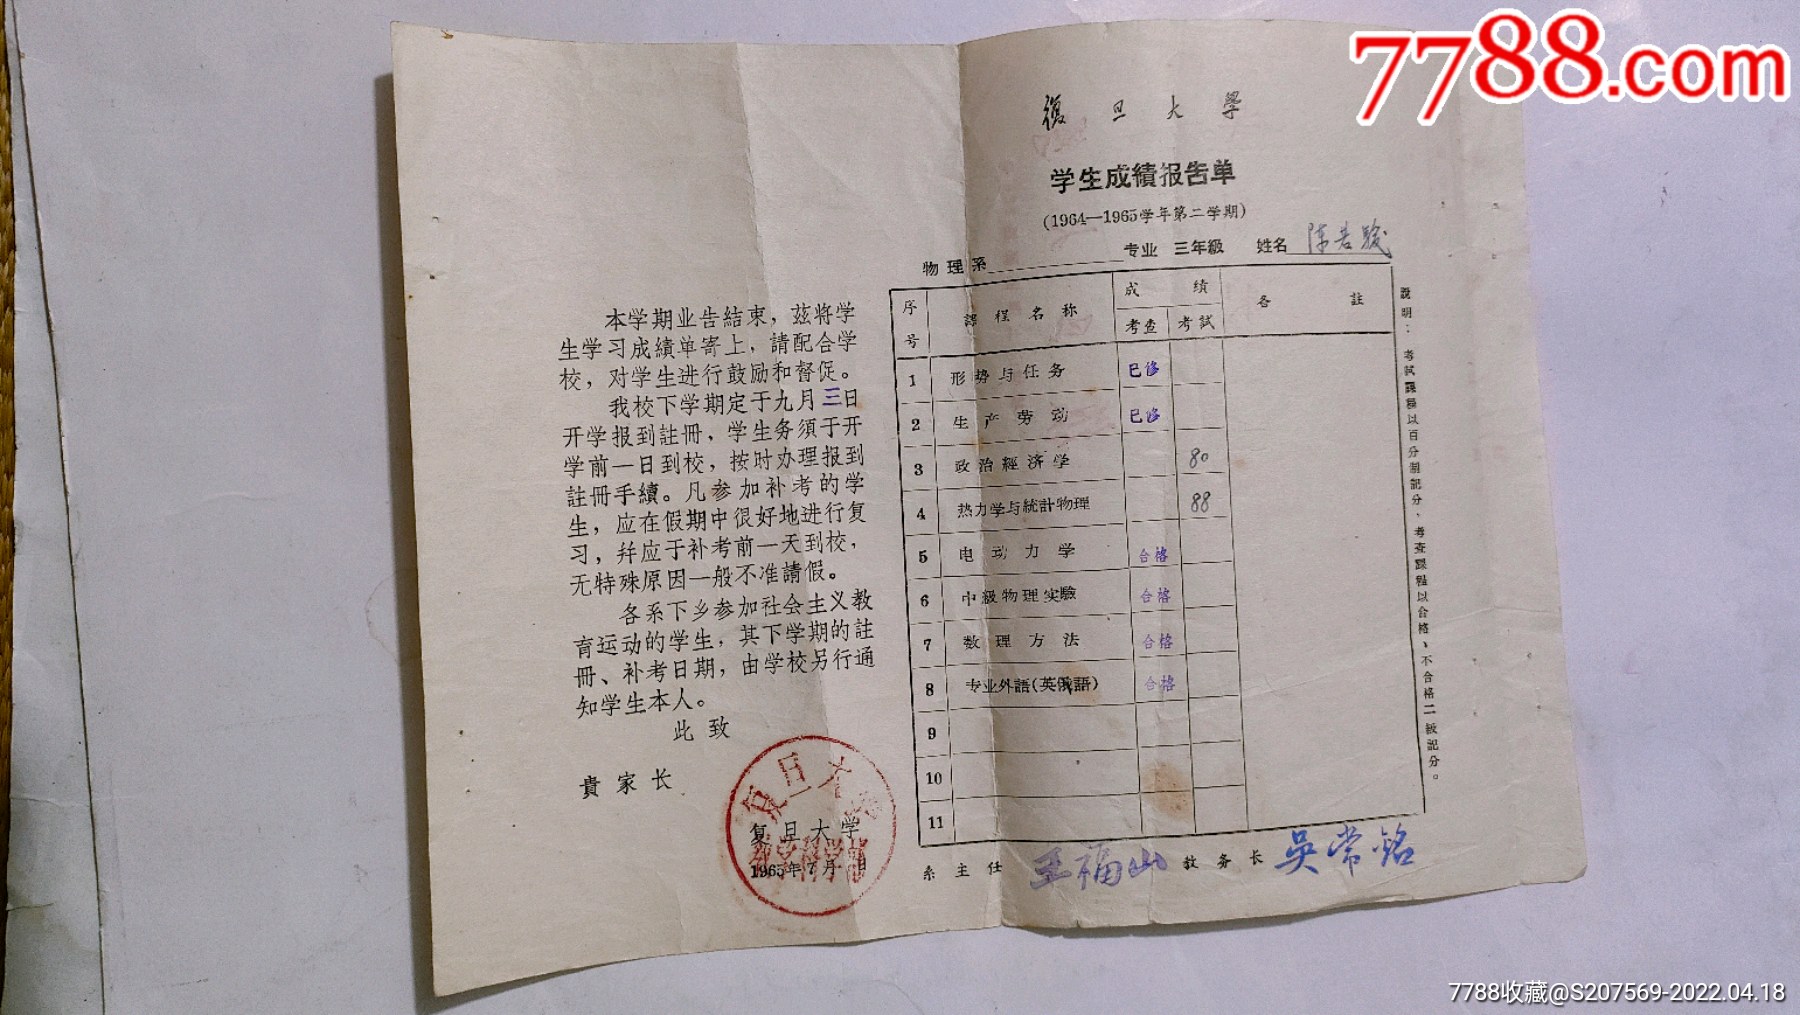 7788.com
復旦大學
学生成績报告单
(1964—1965学年第二学期)
物理系 专业 三年级 姓名 陈
序号 課程名称 成绩 考查 考試 各註
1 形势与任务 已修
2 生产劳动 已修
3 政治經济学 80
4 热力学与統計物理 88
5 电动力学 合格
6 中級物理实驗 合格
7 数理方法 合格
8 专业外語(英俄語) 合格
9
10
11
系主任 王福山 教务长 吳常铭
說明：考試課程以百分制記分，考查課程以合格、不合格二级記分。
本学期业告結束，茲将学
生学习成績单寄上，請配合学
校，对学生进行鼓励和督促。
我校下学期定于九月三日
开学报到註冊，学生务須于开
学前一日到校，按时办理报到
註冊手續。凡参加补考的学
生，应在假期中很好地进行复
习，幷应于补考前一天到校，
无特殊原因一般不准請假。
各系下乡参加社会主义教
育运动的学生，其下学期的註
冊、补考日期，由学校另行通
知学生本人。
此致
貴家长
复旦大学
1965年7月 日
复旦大学
7788收藏@S207569-2022.04.18